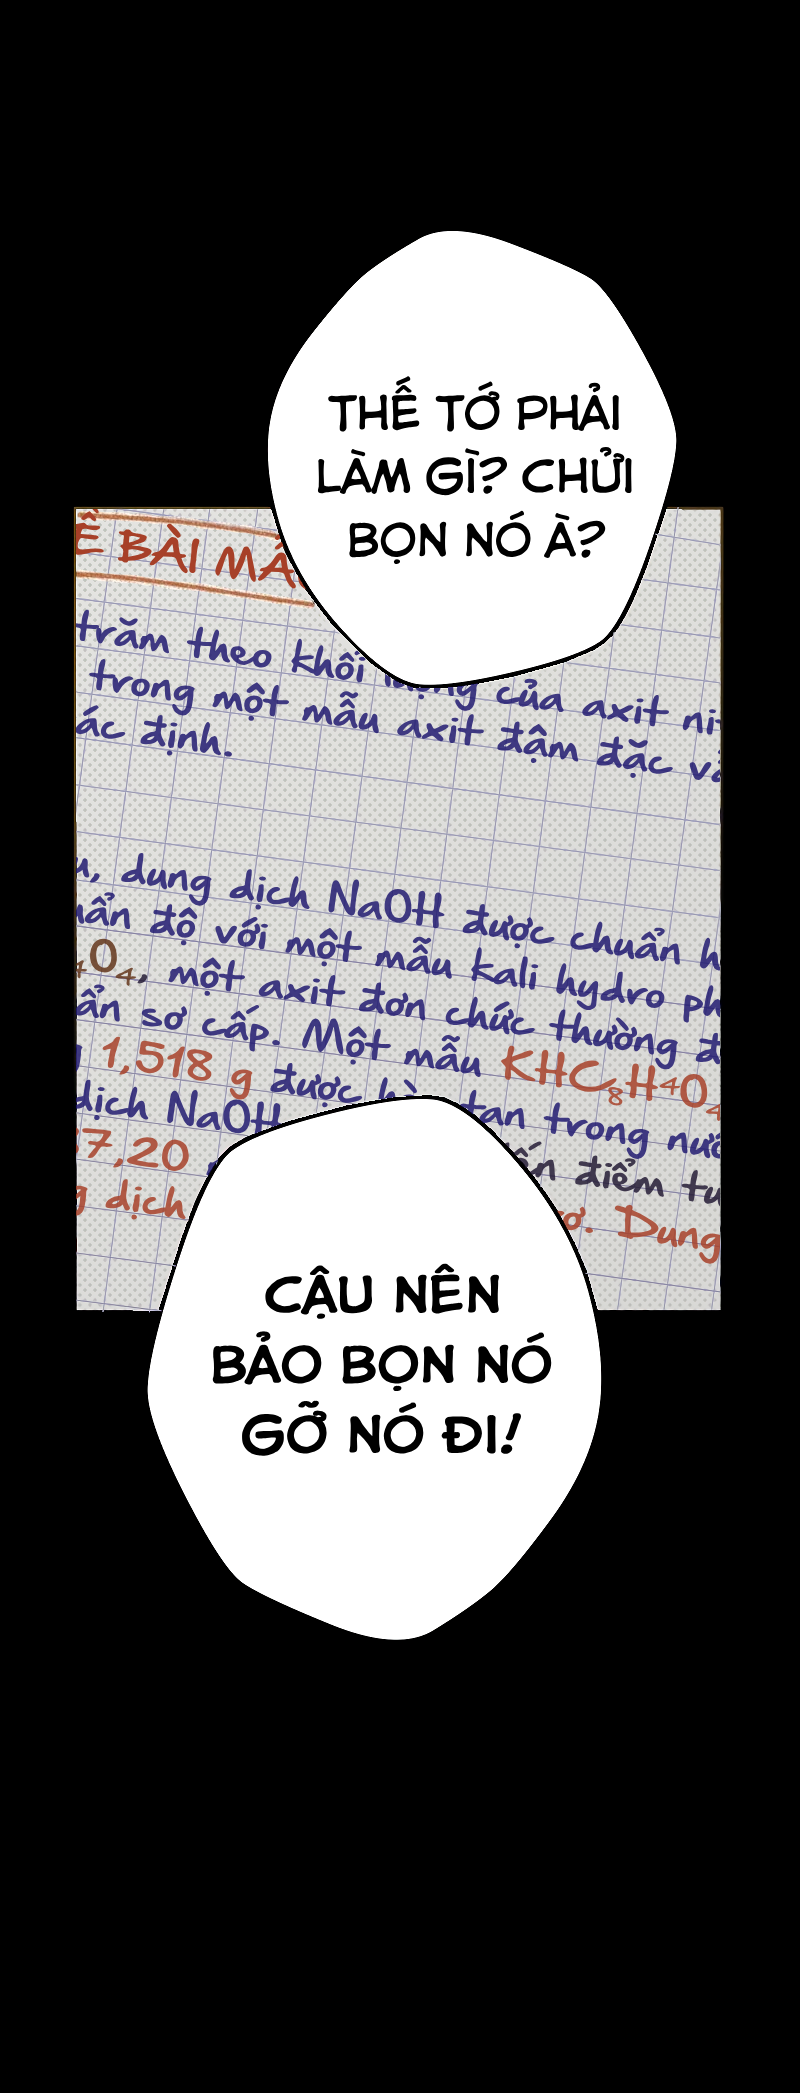 THẾ TỚ PHẢI
LÀM GÌ? CHỬI
BỌN NÓ À?
BÀI
trăm theo khối lượng của axit
trong một mẫu axit đậm đặc
định.
dung dịch NaOH được chuẩn
độ với một mẫu kali hydro
O₄, một axit đơn chức thường
sơ cấp. Một mẫu KHC₈H₄O₄
1,518 g được hòa tan trong
dịch NaOH điểm
7,20
dịch Dung
CẬU NÊN
BẢO BỌN NÓ
GỠ NÓ ĐI!